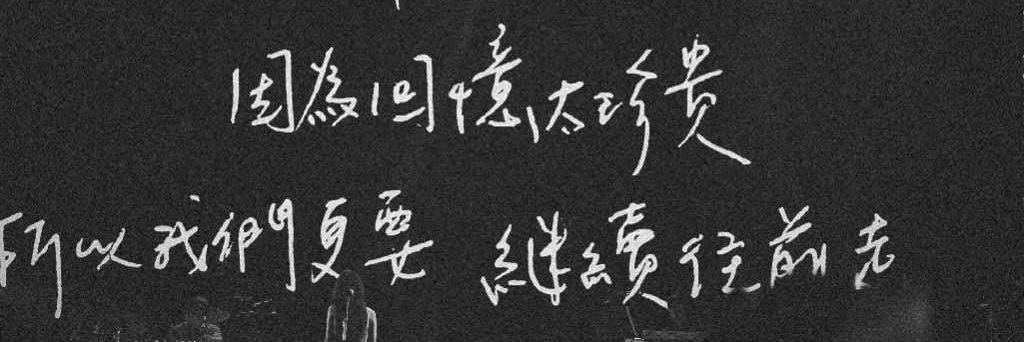 因為回憶太珍貴
所以我們更要 繼續往前走